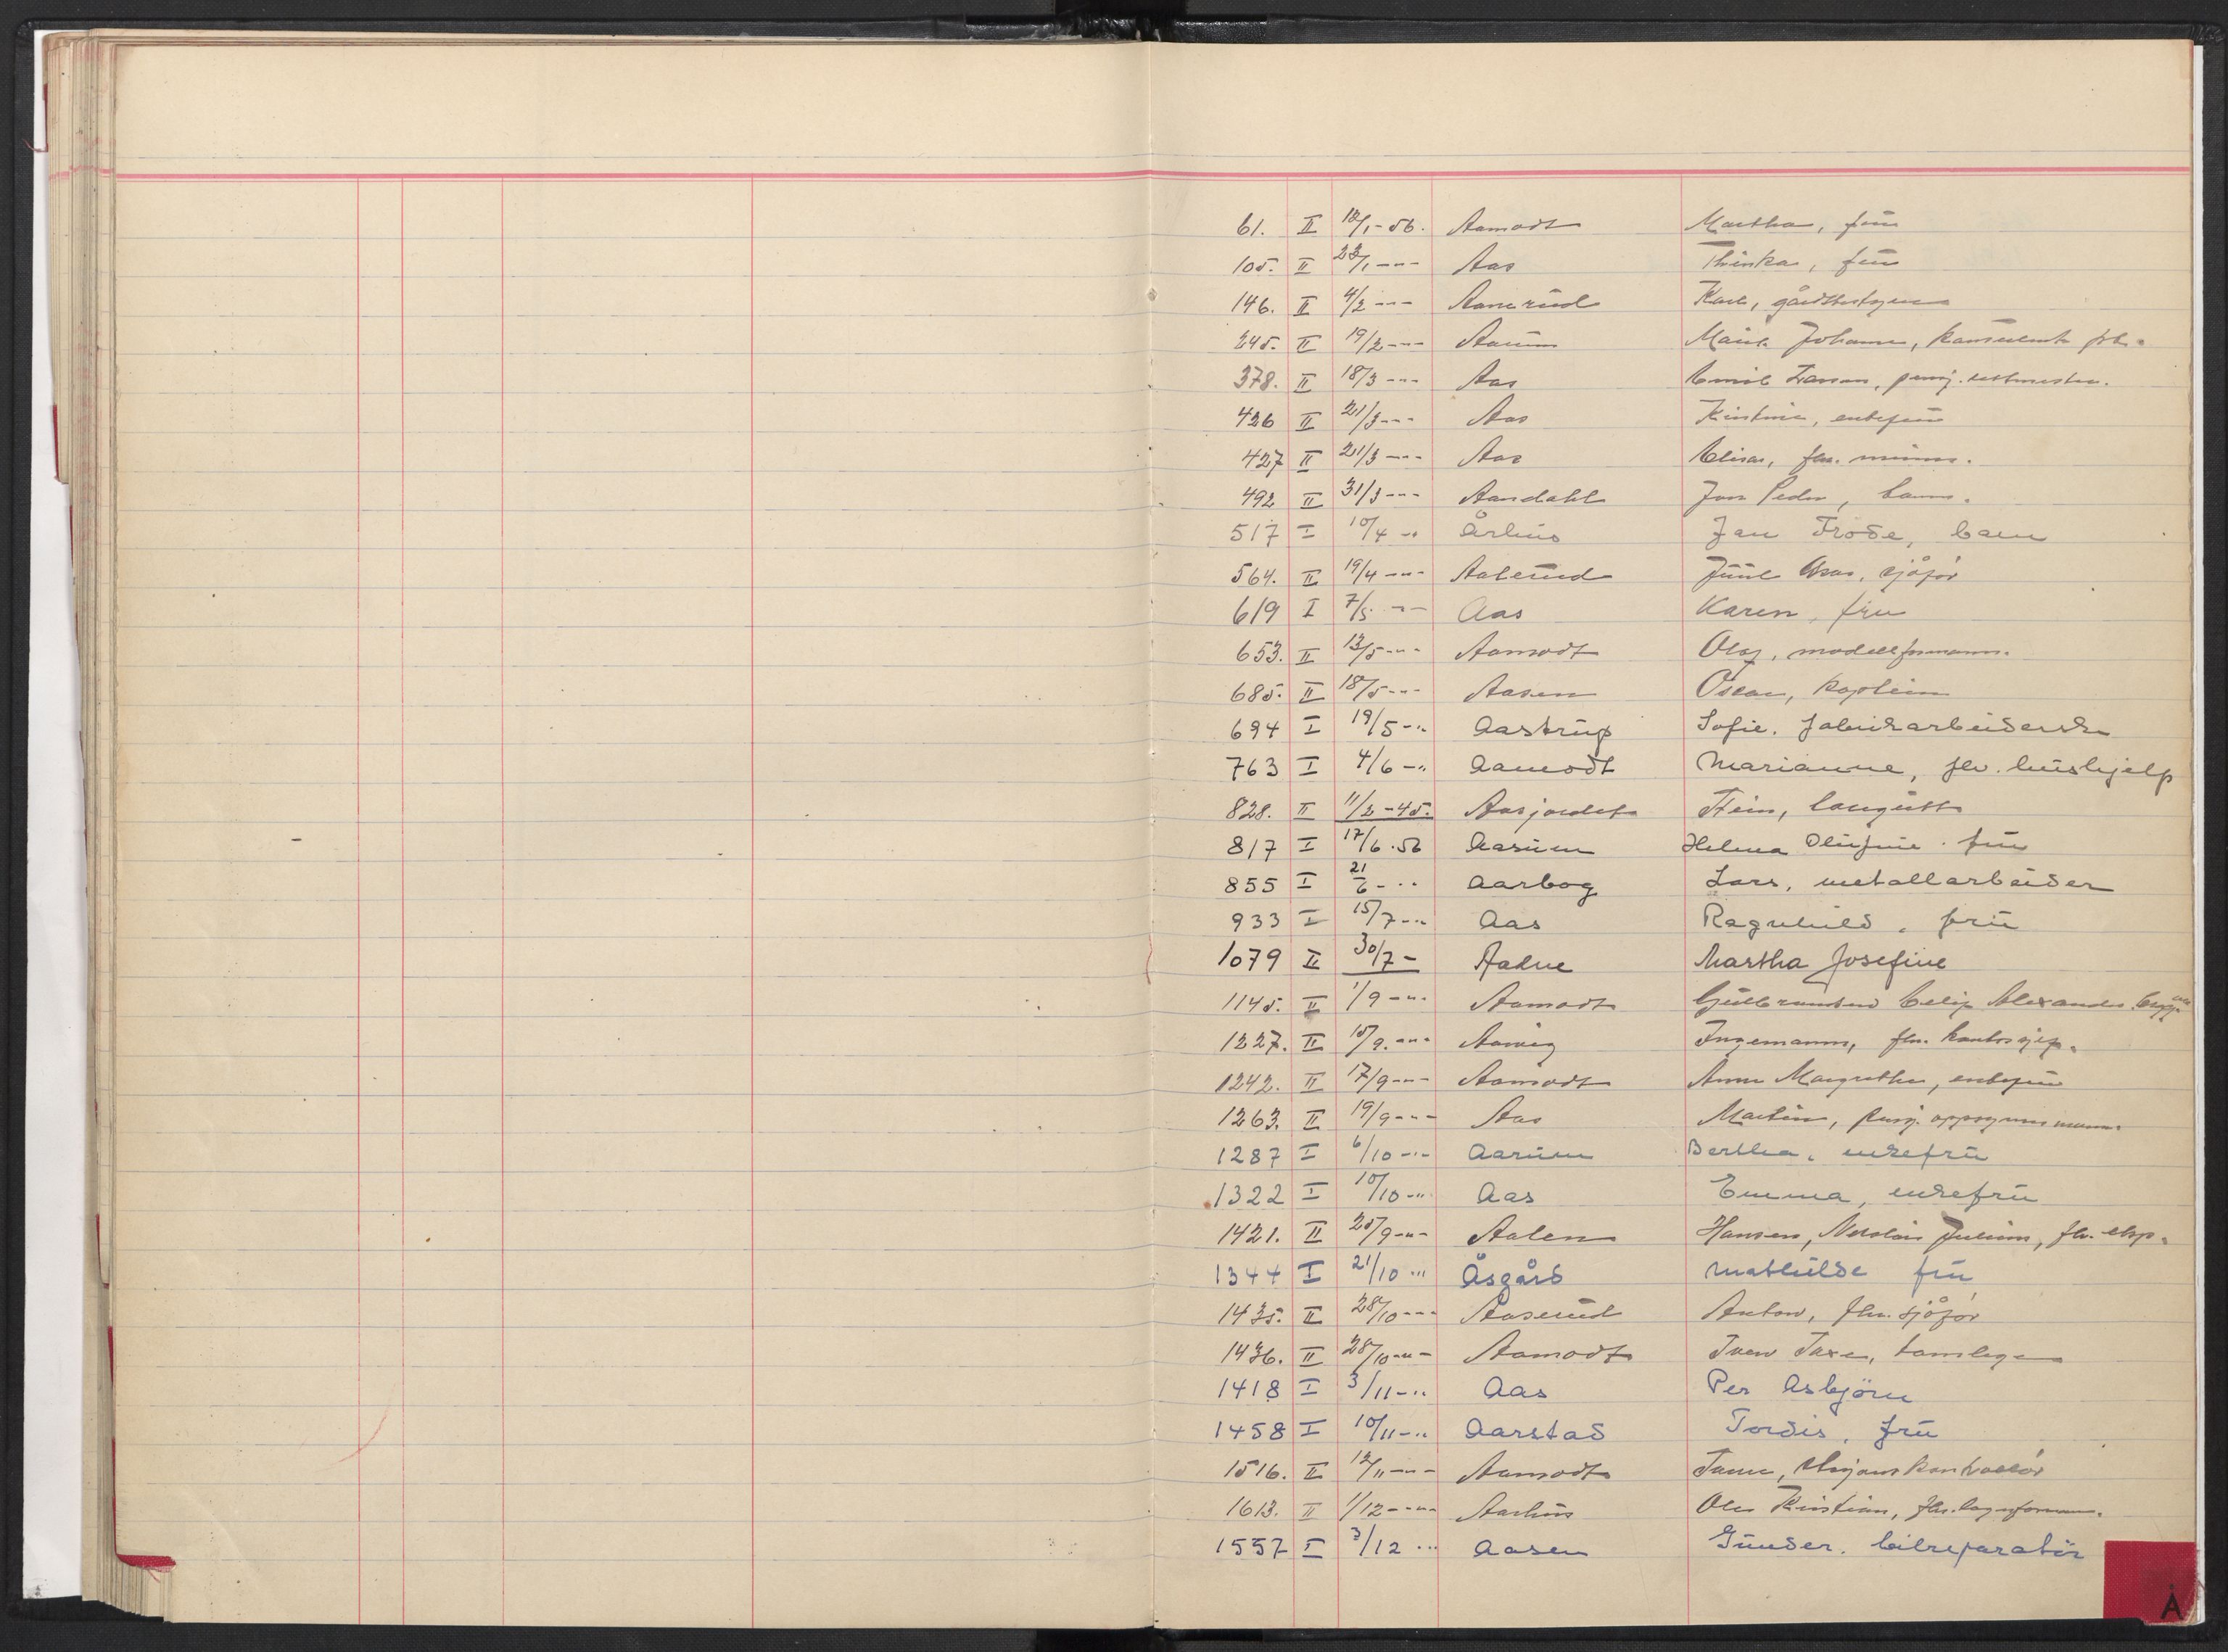 61. II 18/1-56. Aamodt Martha, frü
105. II 23/1 -"- Aas Thinka, frü
146. II 4/2 -"- Aamerüd Karl,
245. II 19/2 -"- Aarüm Johanne,
378. II 18/3 -"- Aas Emil
426 II 21/3 -"- Aas Kristine, enkefrü
427 II 21/3 -"- Aas Elise, fhv.
492 II 31/3 -"- Aandahl Jon Peder, barn.
517 I 10/4 -" Århüs Jan Frode, barn
564. II 19/4 -"- Aaberüd Jüül sjåfør
619 I 7/5 -"- Aas Karen, fru
653. II 13/5 -"- Aamodt Olaf, modellformann.
685. II 18/5 -"- Aasen Oscar, kaptein
694 I 19/5 -" Aastrüp Sofie. fabrikarbeiderske
763 I 4/6 -" Aamodt Marianne, fhv. hüshjelp
828. II 11/2-45. Aasjordet Stein,
817 I 17/6.56 Aasüm Helena Olüfine. frü
855 I 21/6 -" Aarbog Lars, metallarbeider
933 I 15/7 -" Aas Ragnhild, frü
1079 II 30/7 - Aadne Martha Josefine
1145. II 1/9 -"- Aamodt Gülbrandsen Alexander
1227. II 15/9. -"- Ingemann, fhv. kontorsjef.
1242. II 17/9 -"- Aamodt Anne Margrethe, enkefrü
1263. II 19/9 -"- Aas Martin, pensj. oppsynsmann.
1287 I 6/10 -"- Aarüm Bertha, enkefrü
1322 I 10/10 -" Aas Emma, enkefrü
1421. II 25/9 -"- Aalen Hansen, Nicolai Julius, fhv. eksp.
1344 I 21/10 " Åsgård Mathilde frü
1435. II 28/10 -"- Aaserüd Anton, fhv. sjåfør
1436. II 28/10 -"- Aamodt tannlege
1418 I 3/11 -" Aas Per Asbjörn
1458 I 10/11 -" Aarstad Tordis, frü
1516. II 12/11 -"- Aamodt
1613. II 1/12 -"- Aarhüs Ole Kristian, fhv. lagerformann.
1557 I 3/12 " Aasen Günder. bilreparatör
Å